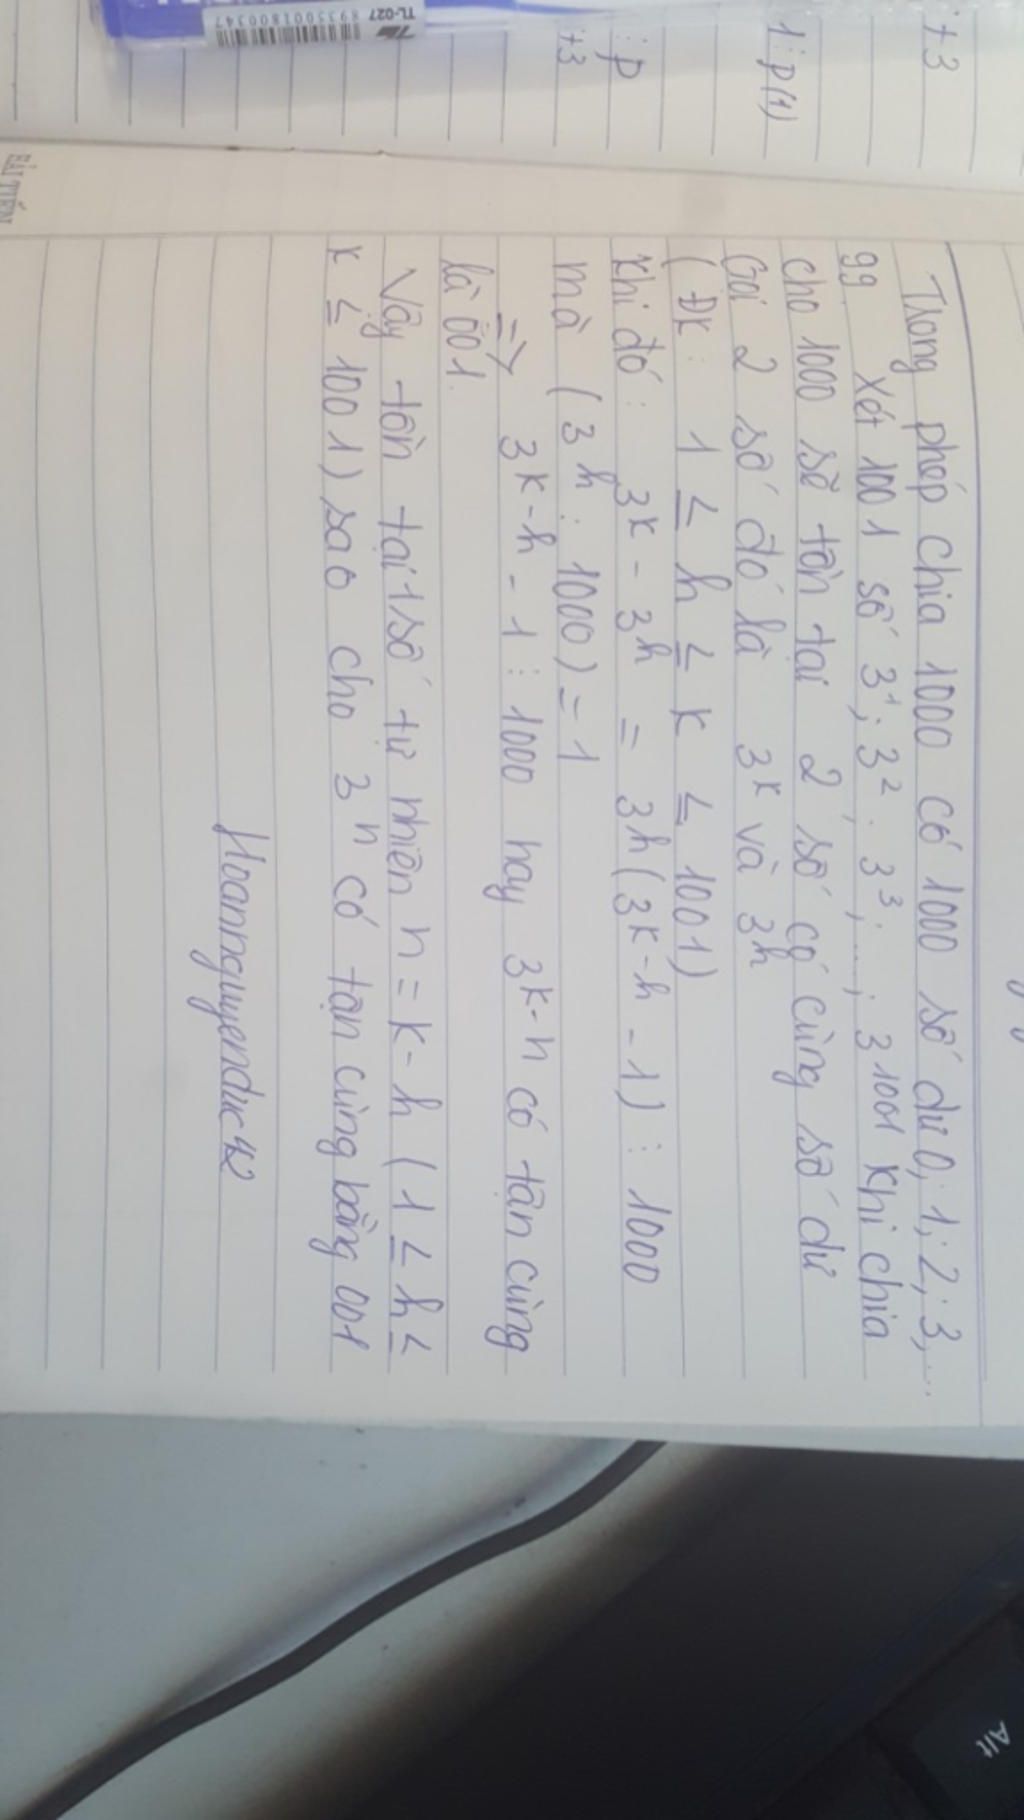 Trong phép chia 1000 có 1000 số dư 0; 1; 2; 3; ...
99 Xét 1001 số 3¹; 3²; 3³; ...; 3¹⁰⁰¹ khi chia
cho 1000 sẽ tồn tại 2 số có cùng số dư
Gọi 2 số đó là 3ᵏ và 3ʰ
(ĐK: 1 ≤ h ≤ k ≤ 1001)
khi đó: 3ᵏ - 3ʰ = 3ʰ(3ᵏ⁻ʰ - 1) ⋮ 1000
mà (3ʰ; 1000) = 1
=> 3ᵏ⁻ʰ - 1 ⋮ 1000 hay 3ᵏ⁻ʰ có tận cùng
là 001.
Vậy tồn tại 1 số tự nhiên n = k - h (1 ≤ h ≤
k ≤ 1001) sao cho 3ⁿ có tận cùng bằng 001
Hoannguyenduc42
+3
1 ⋮ p (1)
⋮ p
+3
TL-027
8935001800347
HẢI TIẾN
Alt